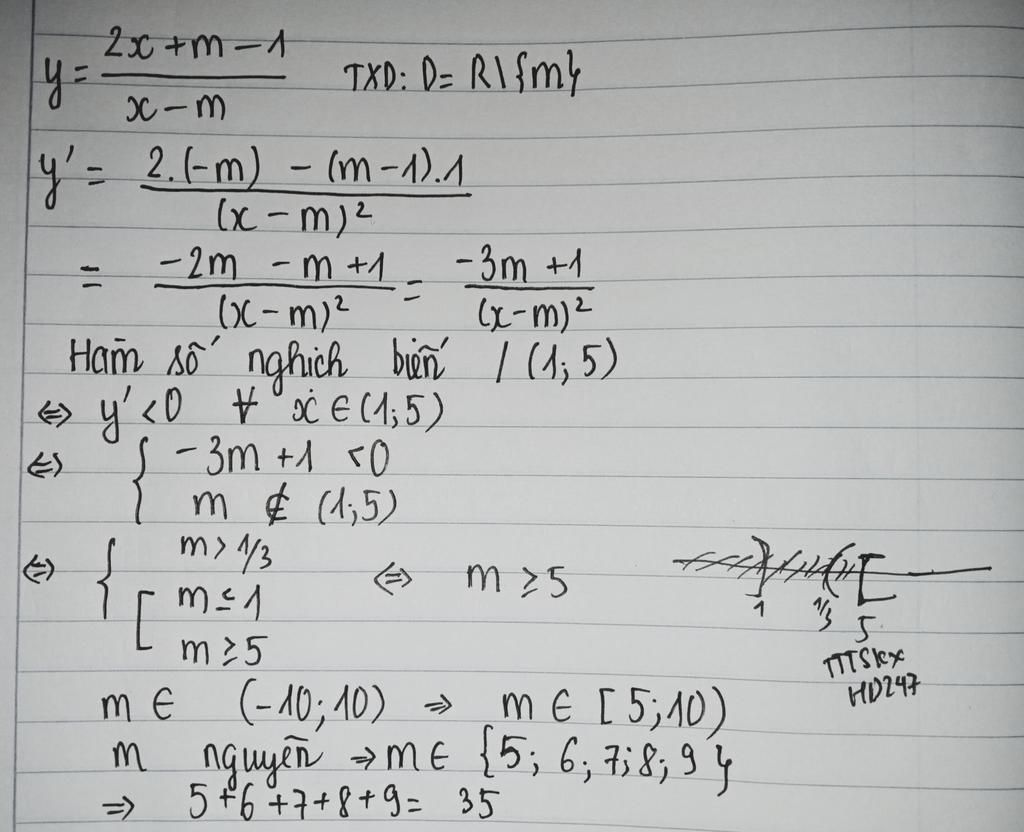 y = (2x + m - 1)/(x - m) TXD: D = R\{m}
y' = (2.(-m) - (m-1).1)/(x - m)²
= (-2m - m + 1)/(x - m)² = (-3m + 1)/(x-m)²
Hàm số nghịch biến / (1; 5)
⇔ y' < 0 ∀ x ∈ (1; 5)
⇔ { -3m + 1 < 0
m ∉ (1; 5)
⇔ { m > 1/3
[ m ≤ 1
m ≥ 5
⇔ m ≥ 5
1 1/3 5
TTTSkx
HD247
m ∈ (-10; 10) ⇒ m ∈ [5; 10)
m nguyên ⇒ m ∈ {5; 6; 7; 8; 9}
⇒ 5+6+7+8+9 = 35